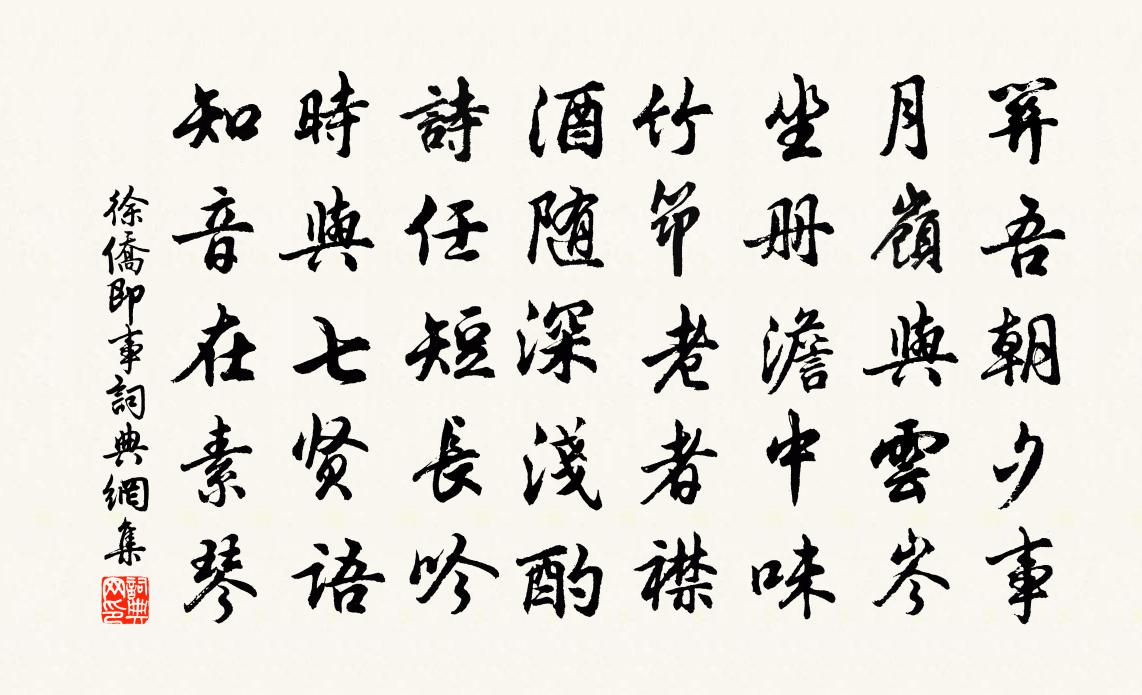 筭吾朝夕事
月嶺與雲岑
坐册澹中味
竹節老者襟
酒随深淺酌
詩任短長吟
時與七贤語
知音在素琴
徐僑即事詞典網集
詞典网印